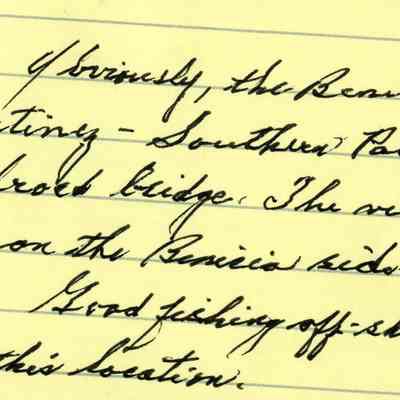 Obviously, the Beni
tinez - Southern Pa
lroad bridge. The vi
on the Benicia side
Good fishing off-sh
this location.